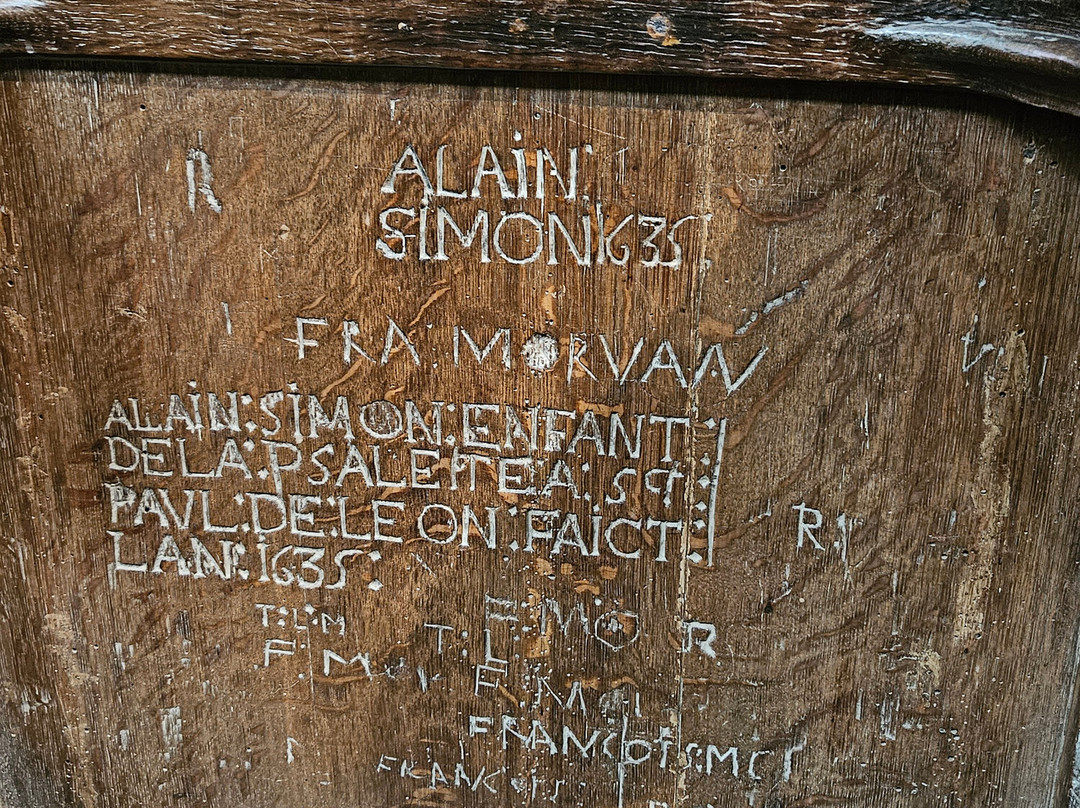 R
ALAIN:
SIMON 1635
FRA MORVAN
ALAIN:SIMON:ENFANT:
DE LA:PSALEITE:A:
PAVL:DE:LEON:FAICT:
LAN:1635:
R
T:L:M
F:MO
T:L
R
F
FRANCOIS:
FRANCOIS